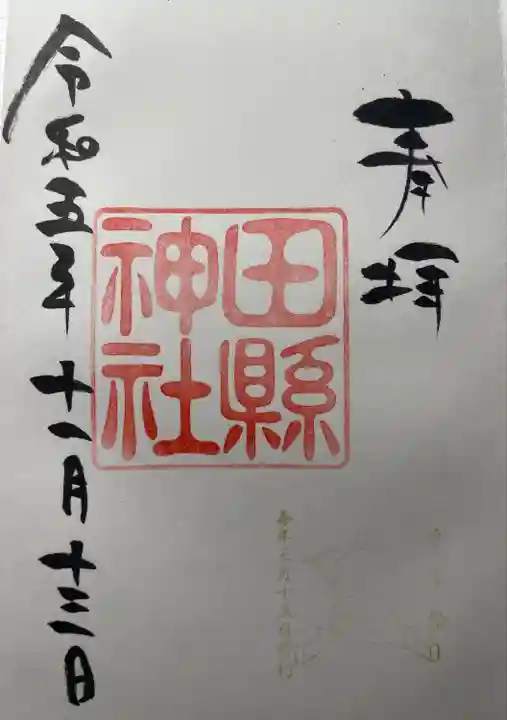 奉拝
田縣
神社
令和五年十一月十三日